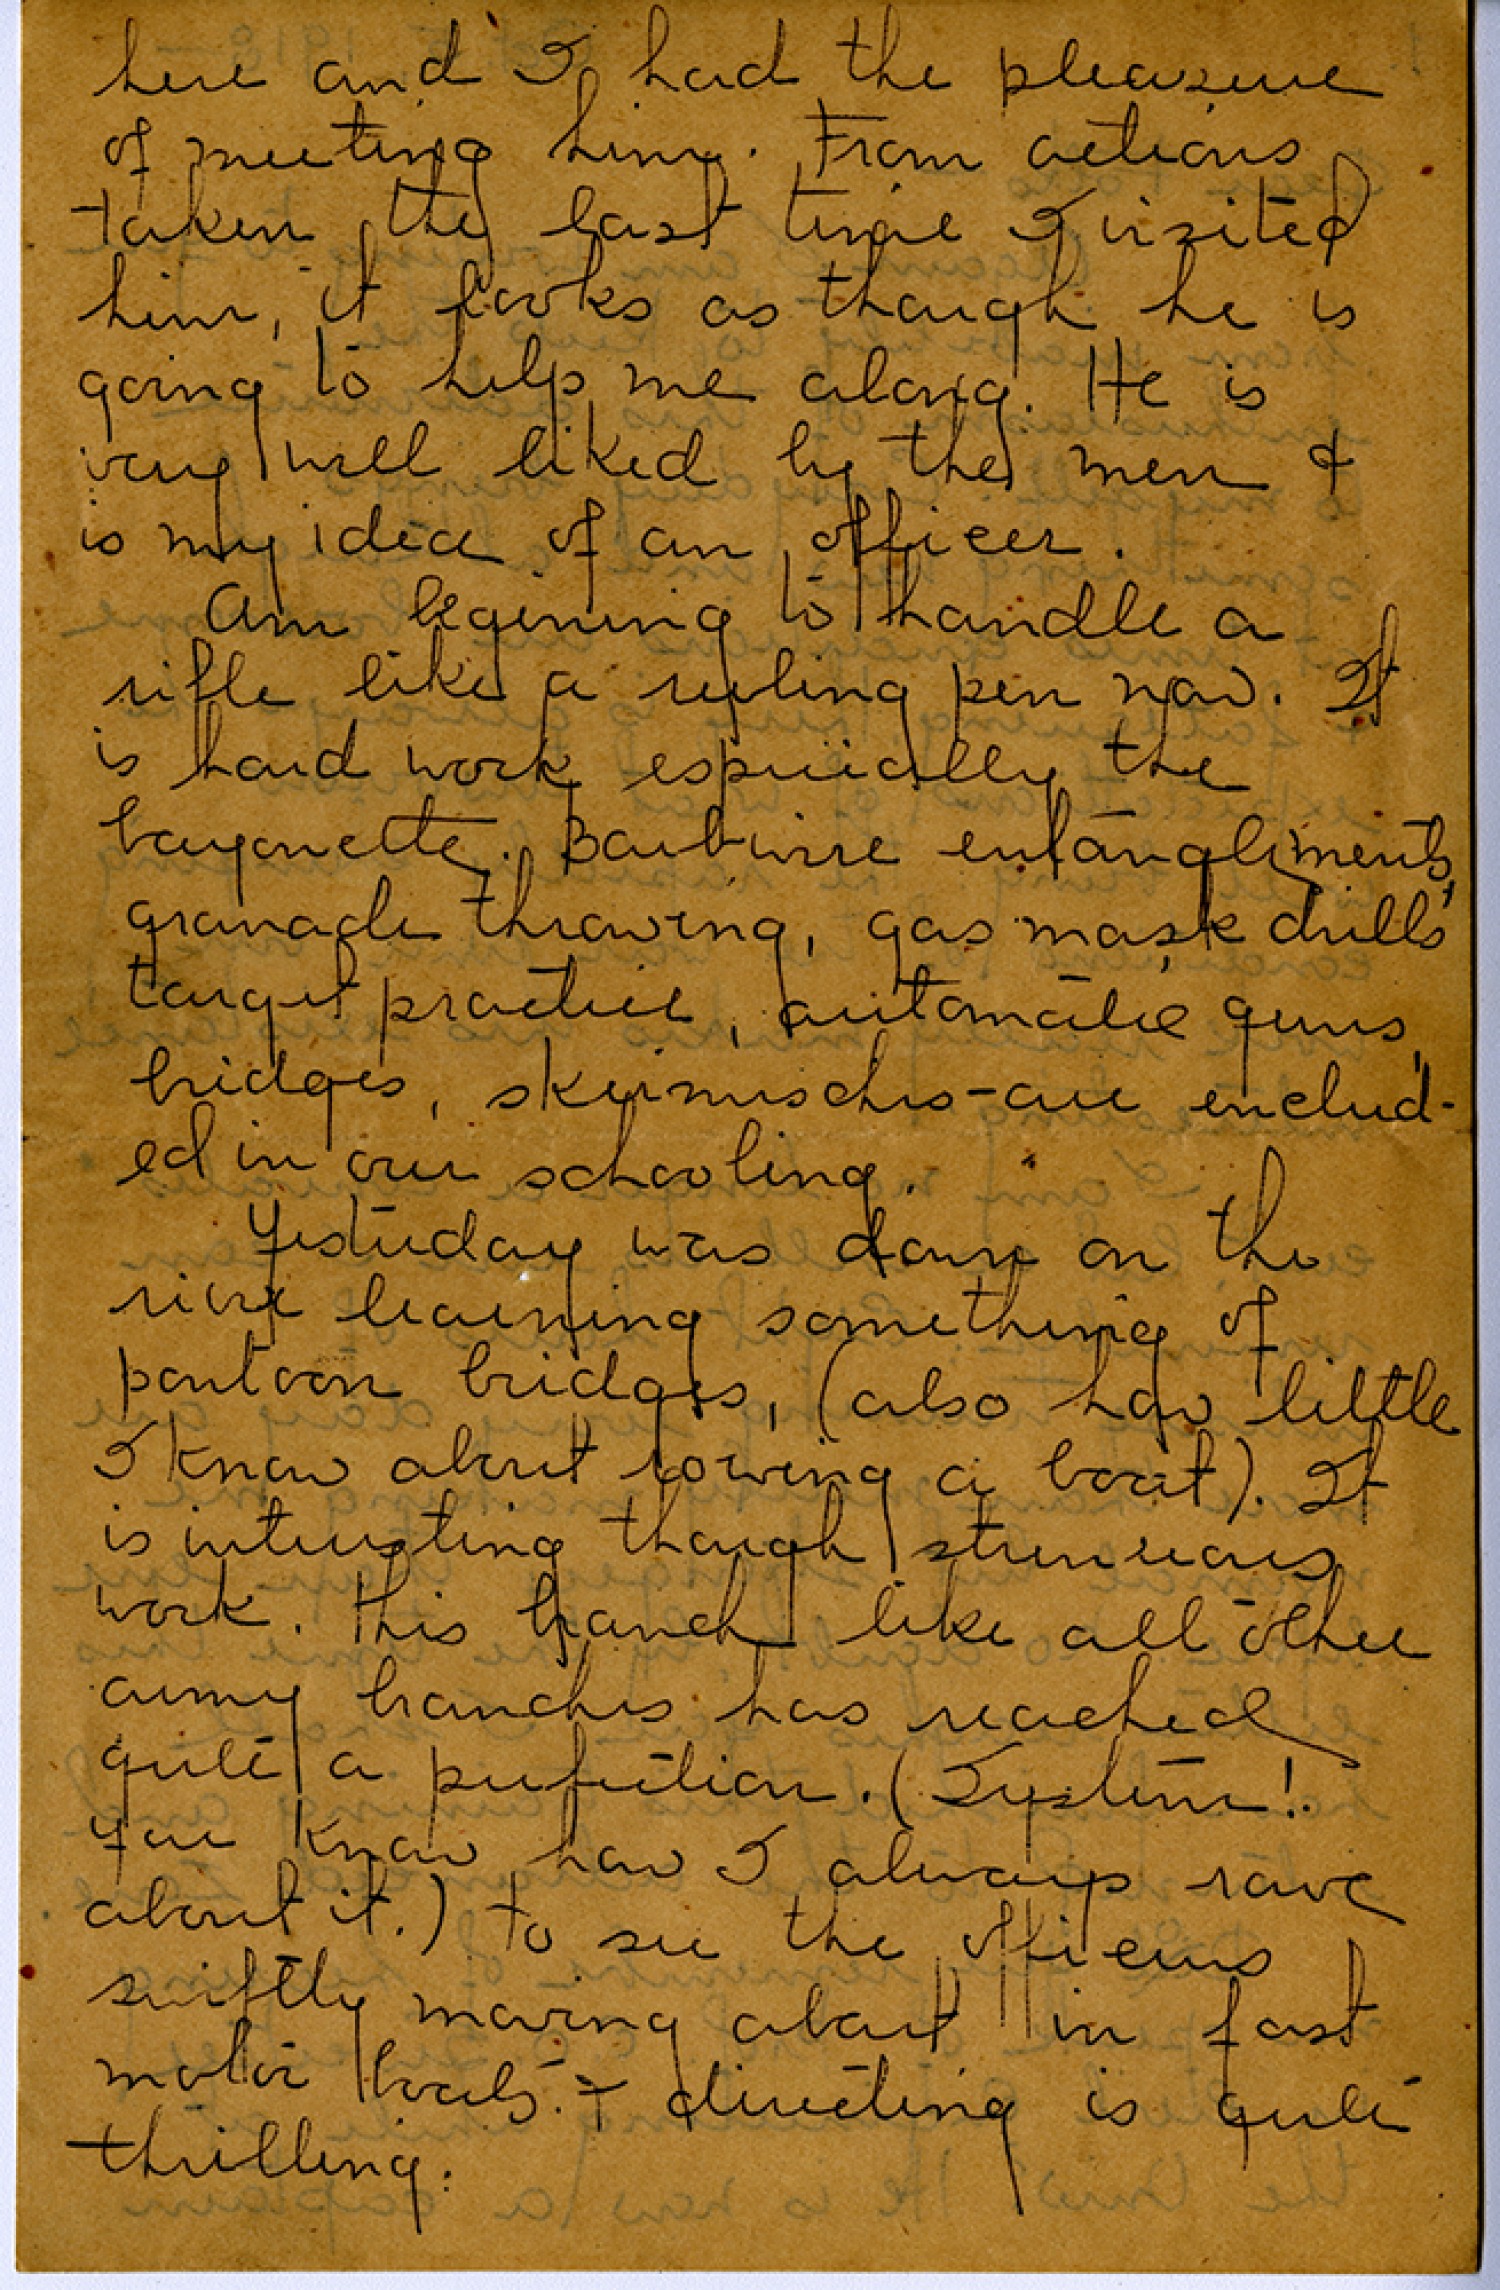 here and I had the pleasure
of meeting him. From actions
taken the last time I visited
him, it looks as though he is
going to help me along. He is
very well liked by the men &
is my idea of an officer.
Am begining to handle a
rifle like a ruling pen now. It
is hard work especially the
bayonette. Barbwire entanglements,
granade throwing, gas mask drills,
target practice, automatic guns,
bridges, skirmisches-are includ-
ed in our schooling.
Yesterday was down on the
river learning something of
pontoon bridges, (also how little
I know about rowing a boat). It
is interesting though strenuous
work. This branch like all other
army branches has reached
quite a perfection. (System!
You know how I always rave
about it.) To see the officers
swiftly moving about in fast
motor boats & directing is quite
thrilling.